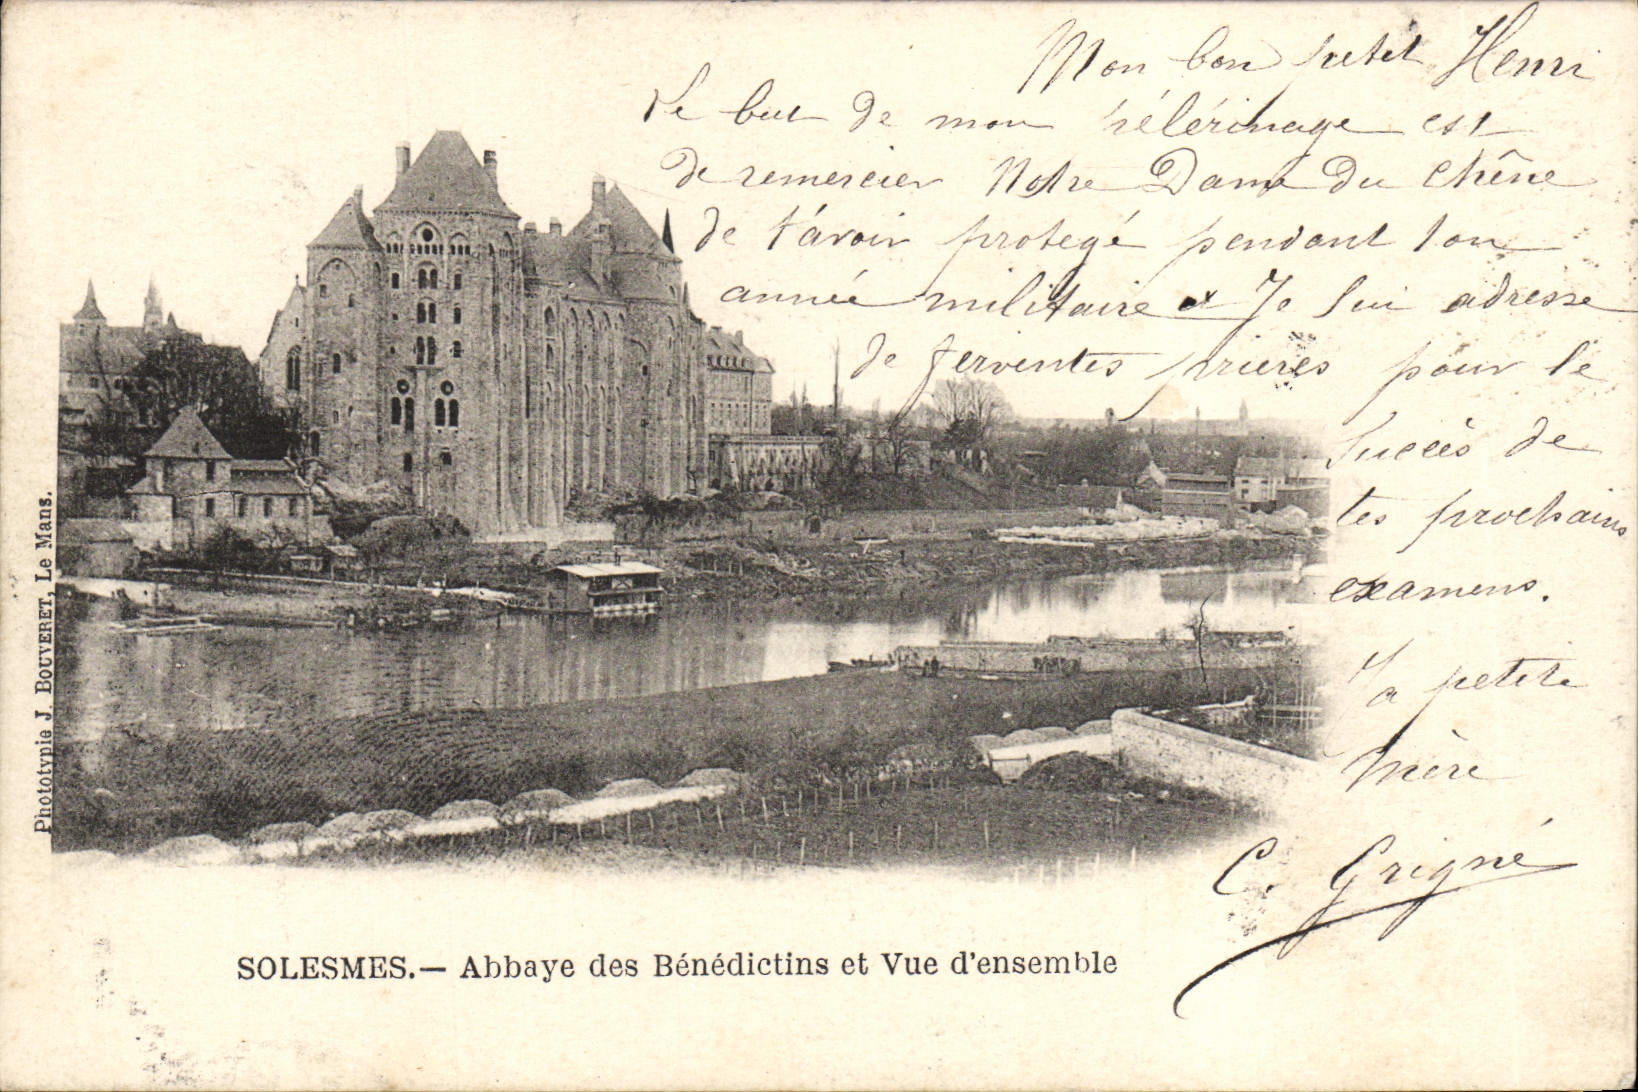 Mon bon petit Henri
Le but de mon pélérinage est
de remercier Notre Dame Du Chêne
de t'avoir protegé pendant ton
année militaire et Je lui adresse
de ferventes prières pour le
Succès de
tes prochains
examens.
Ta petite
Mère
C. Grigné
Phototypie J. BOUVERET, Le Mans.
SOLESMES.— Abbaye des Bénédictins et Vue d'ensemble